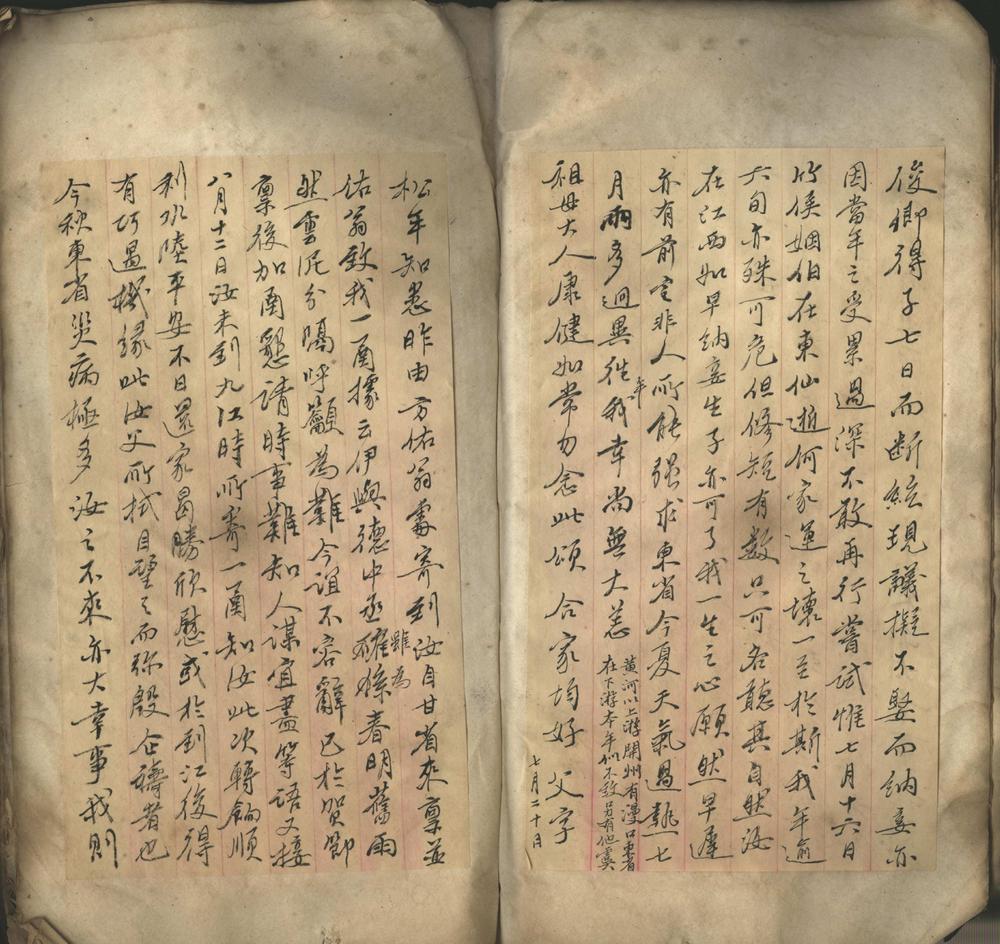 俊卿得子七日而斷絃現議擬不娶而納妾亦
因當年之受累過深不敢再行嘗試惟七月十六日
竹侯姻伯在東仙逝何家運之壞一至於斯我年逾
六旬亦殊可危但修短有數只可各聽其自然汝
在江西如早納妾生子亦可了我一生之心願然早遲
亦有前定非人所能强求東省今夏天氣過熱七
月雨多迥異往年我幸尚無大恙
黃河以上游開州有漫口東省
在下游本年似不致另有他虞
祖母大人康健如常勿念此頌 合家均好 父字
七月二十日
松年知悉昨由方佑翁處寄到汝自甘省來稟並
佑翁致我一函據云伊與德中丞雖為春明舊雨
然雲泥分隔呼籲為難今誼不容辭已於賀節
稟後加函懇請時事難知人謀宜盡等語又接
八月十二日汝未到九江時所寄一函知汝此次轉餉順
利水陸平安不日還家曷勝欣慰或於到江後得
有巧遇機緣此汝父所拭目望之而弥殷企禱者也
今秋東省災病極多汝之不來亦大幸事我則